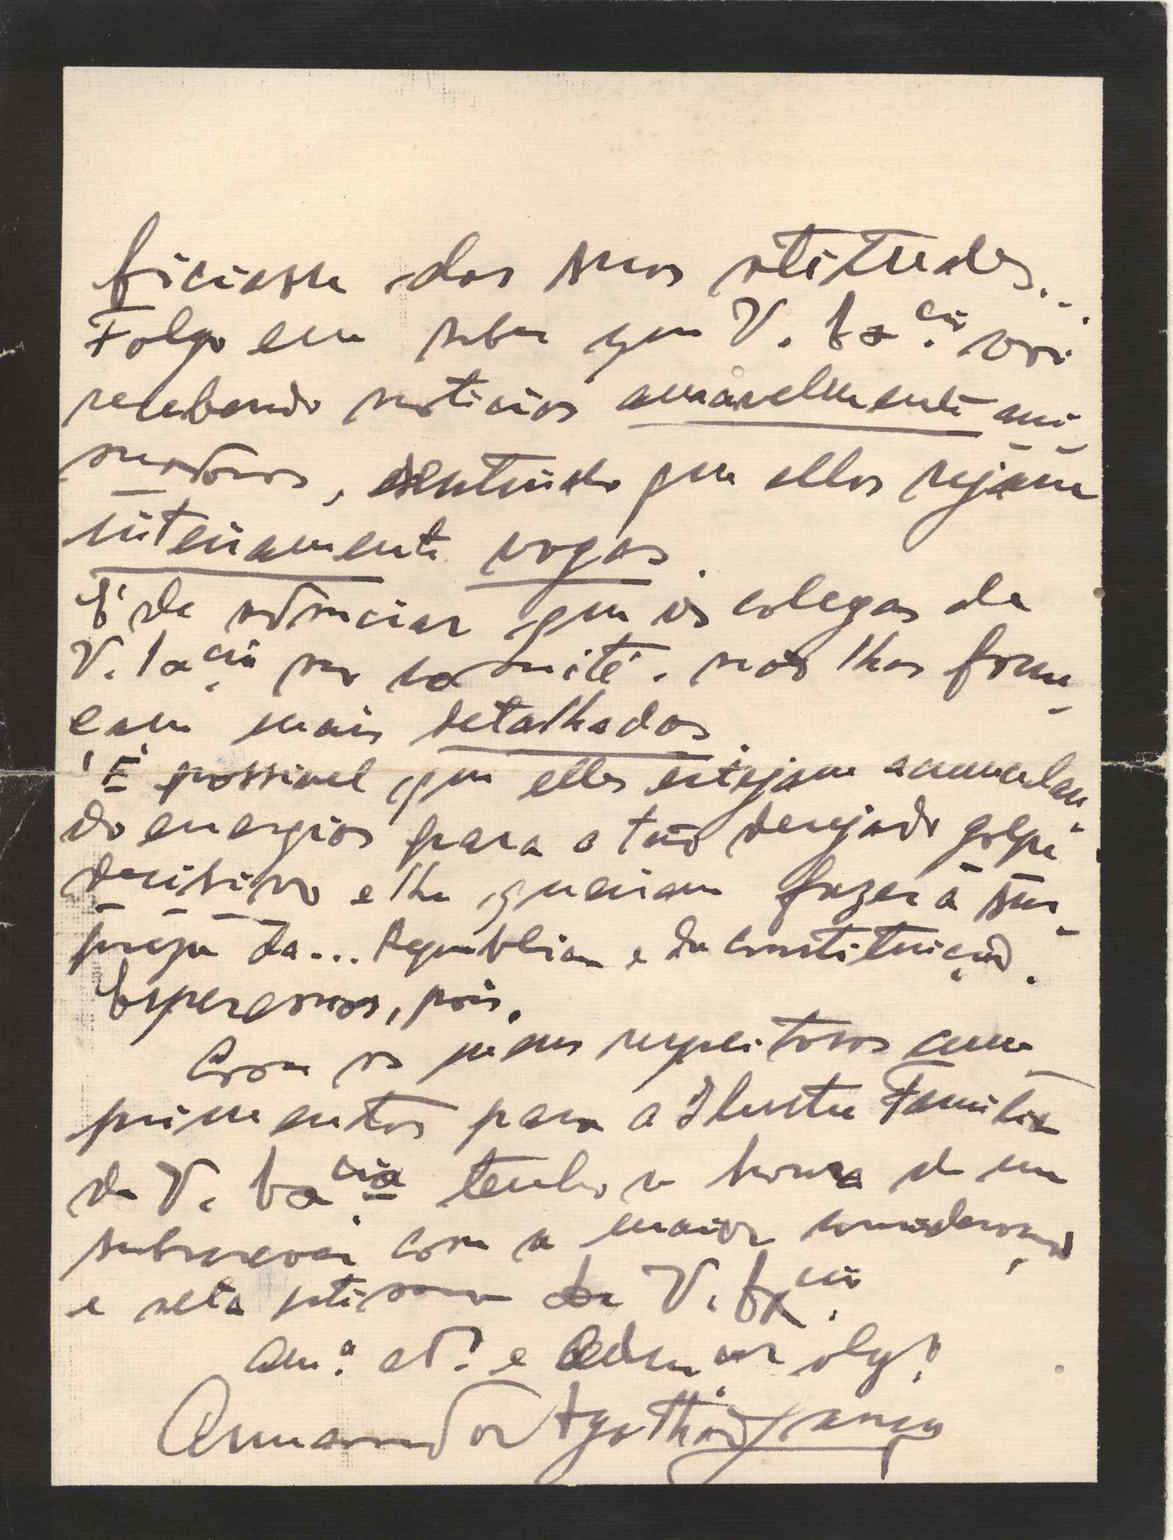 ficiasse das suas atitudes...
Folgo em saber que V. Exa.cia vai
recebendo noticias amavelmente ani-
madoras, sentindo que ellas sejam
inteiramente vagas.
É de admirar que os colegas de
V. Exa.cia no comité. não lhas forne-
çam mais detalhadas.
É possivel que elles estejam acumulan-
do energias para o tão desejado golpe
decisivo e lhe queiram fazer a sur-
preza da... Republica e da constituição.
Esperemos, pois.
Com os meus respeitosos cum-
primentos para a Ilustre Familia
de V. Exa.cia tenho a honra de me
subscrever com a maior consideração
e alta estima de V. Exa.cia
Am.º at.º e Admor obg.º
Armando Agathão Lança